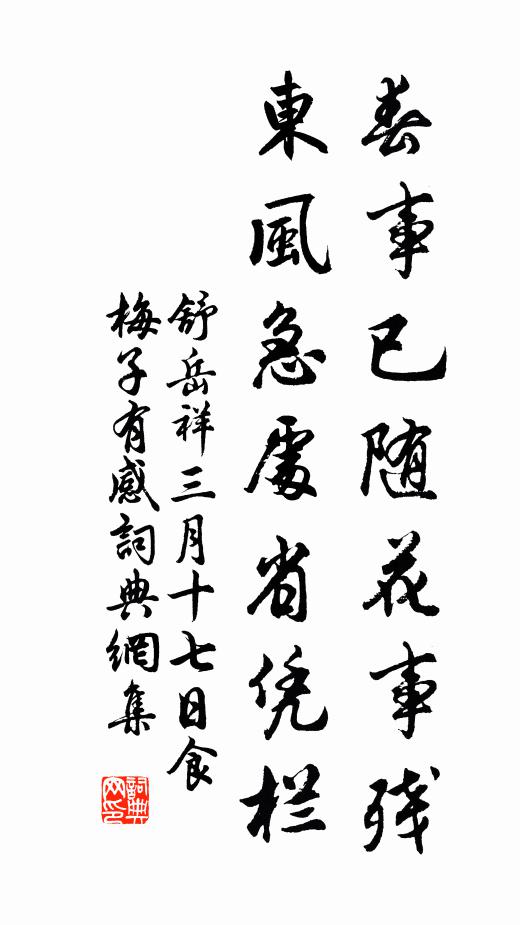 春事已随花事残
東風急處省凭栏
舒岳祥三月十七日食
梅子有感詞典網集
詞典网印